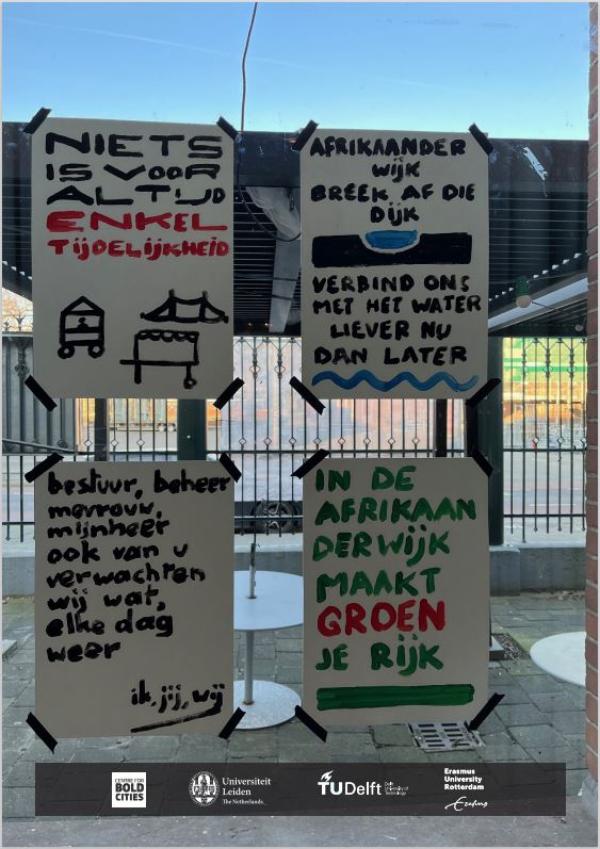 NIETS
IS VOOR
ALTIJD
ENKEL
TIJDELIJKHEID
AFRIKAANDER
WIJK
BREEK AF DIE
DIJK
VERBIND ONS
MET HET WATER
LIEVER NU
DAN LATER
bestuur, beheer
mevrouw,
mijnheer
ook van u
verwachten
wij wat,
elke dag
weer
ik, jij, wij
IN DE
AFRIKAAN
DERWIJK
MAAKT
GROEN
JE RIJK
CENTRE FOR
BOLD
CITIES
Universiteit
Leiden
The Netherlands
TUDelft
Delft
University of
Technology
Erasmus
University
Rotterdam
Erasmus